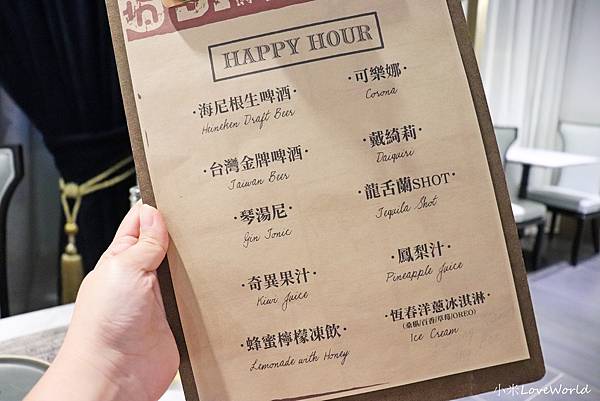 HAPPY HOUR
·海尼根生啤酒·
Heineken Draft Beer
·台灣金牌啤酒·
Taiwan Beer
·琴湯尼·
Gin Tonic
·奇異果汁·
Kiwi Juice
·蜂蜜檸檬凍飲·
Lemonade with Honey
·可樂娜·
Corona
·戴綺莉·
Daiquiri
·龍舌蘭SHOT·
Tequila Shot
·鳳梨汁·
Pineapple Juice
·恆春洋蔥冰淇淋·
(桑椹/百香/草莓/OREO)
Ice Cream
小米LoveWorld